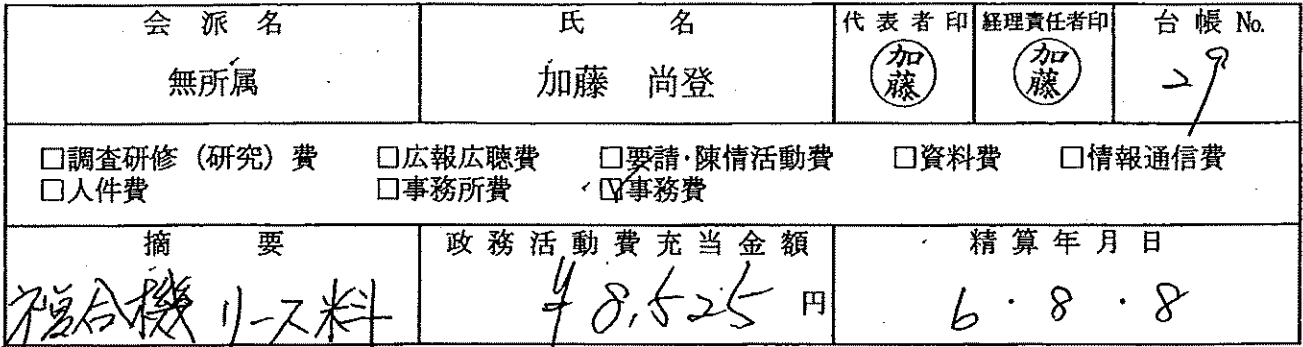 会派名 氏名 代表者印 経理責任者印 台帳No.
無所属 加藤 尚登 加藤 加藤 29
□調査研修(研究)費 □広報広聴費 □要請・陳情活動費 □資料費 □情報通信費
□人件費 □事務所費 ☑事務費
摘要 政務活動費充当金額 精算年月日
複合機リース料 ¥8,525円 6・8・8